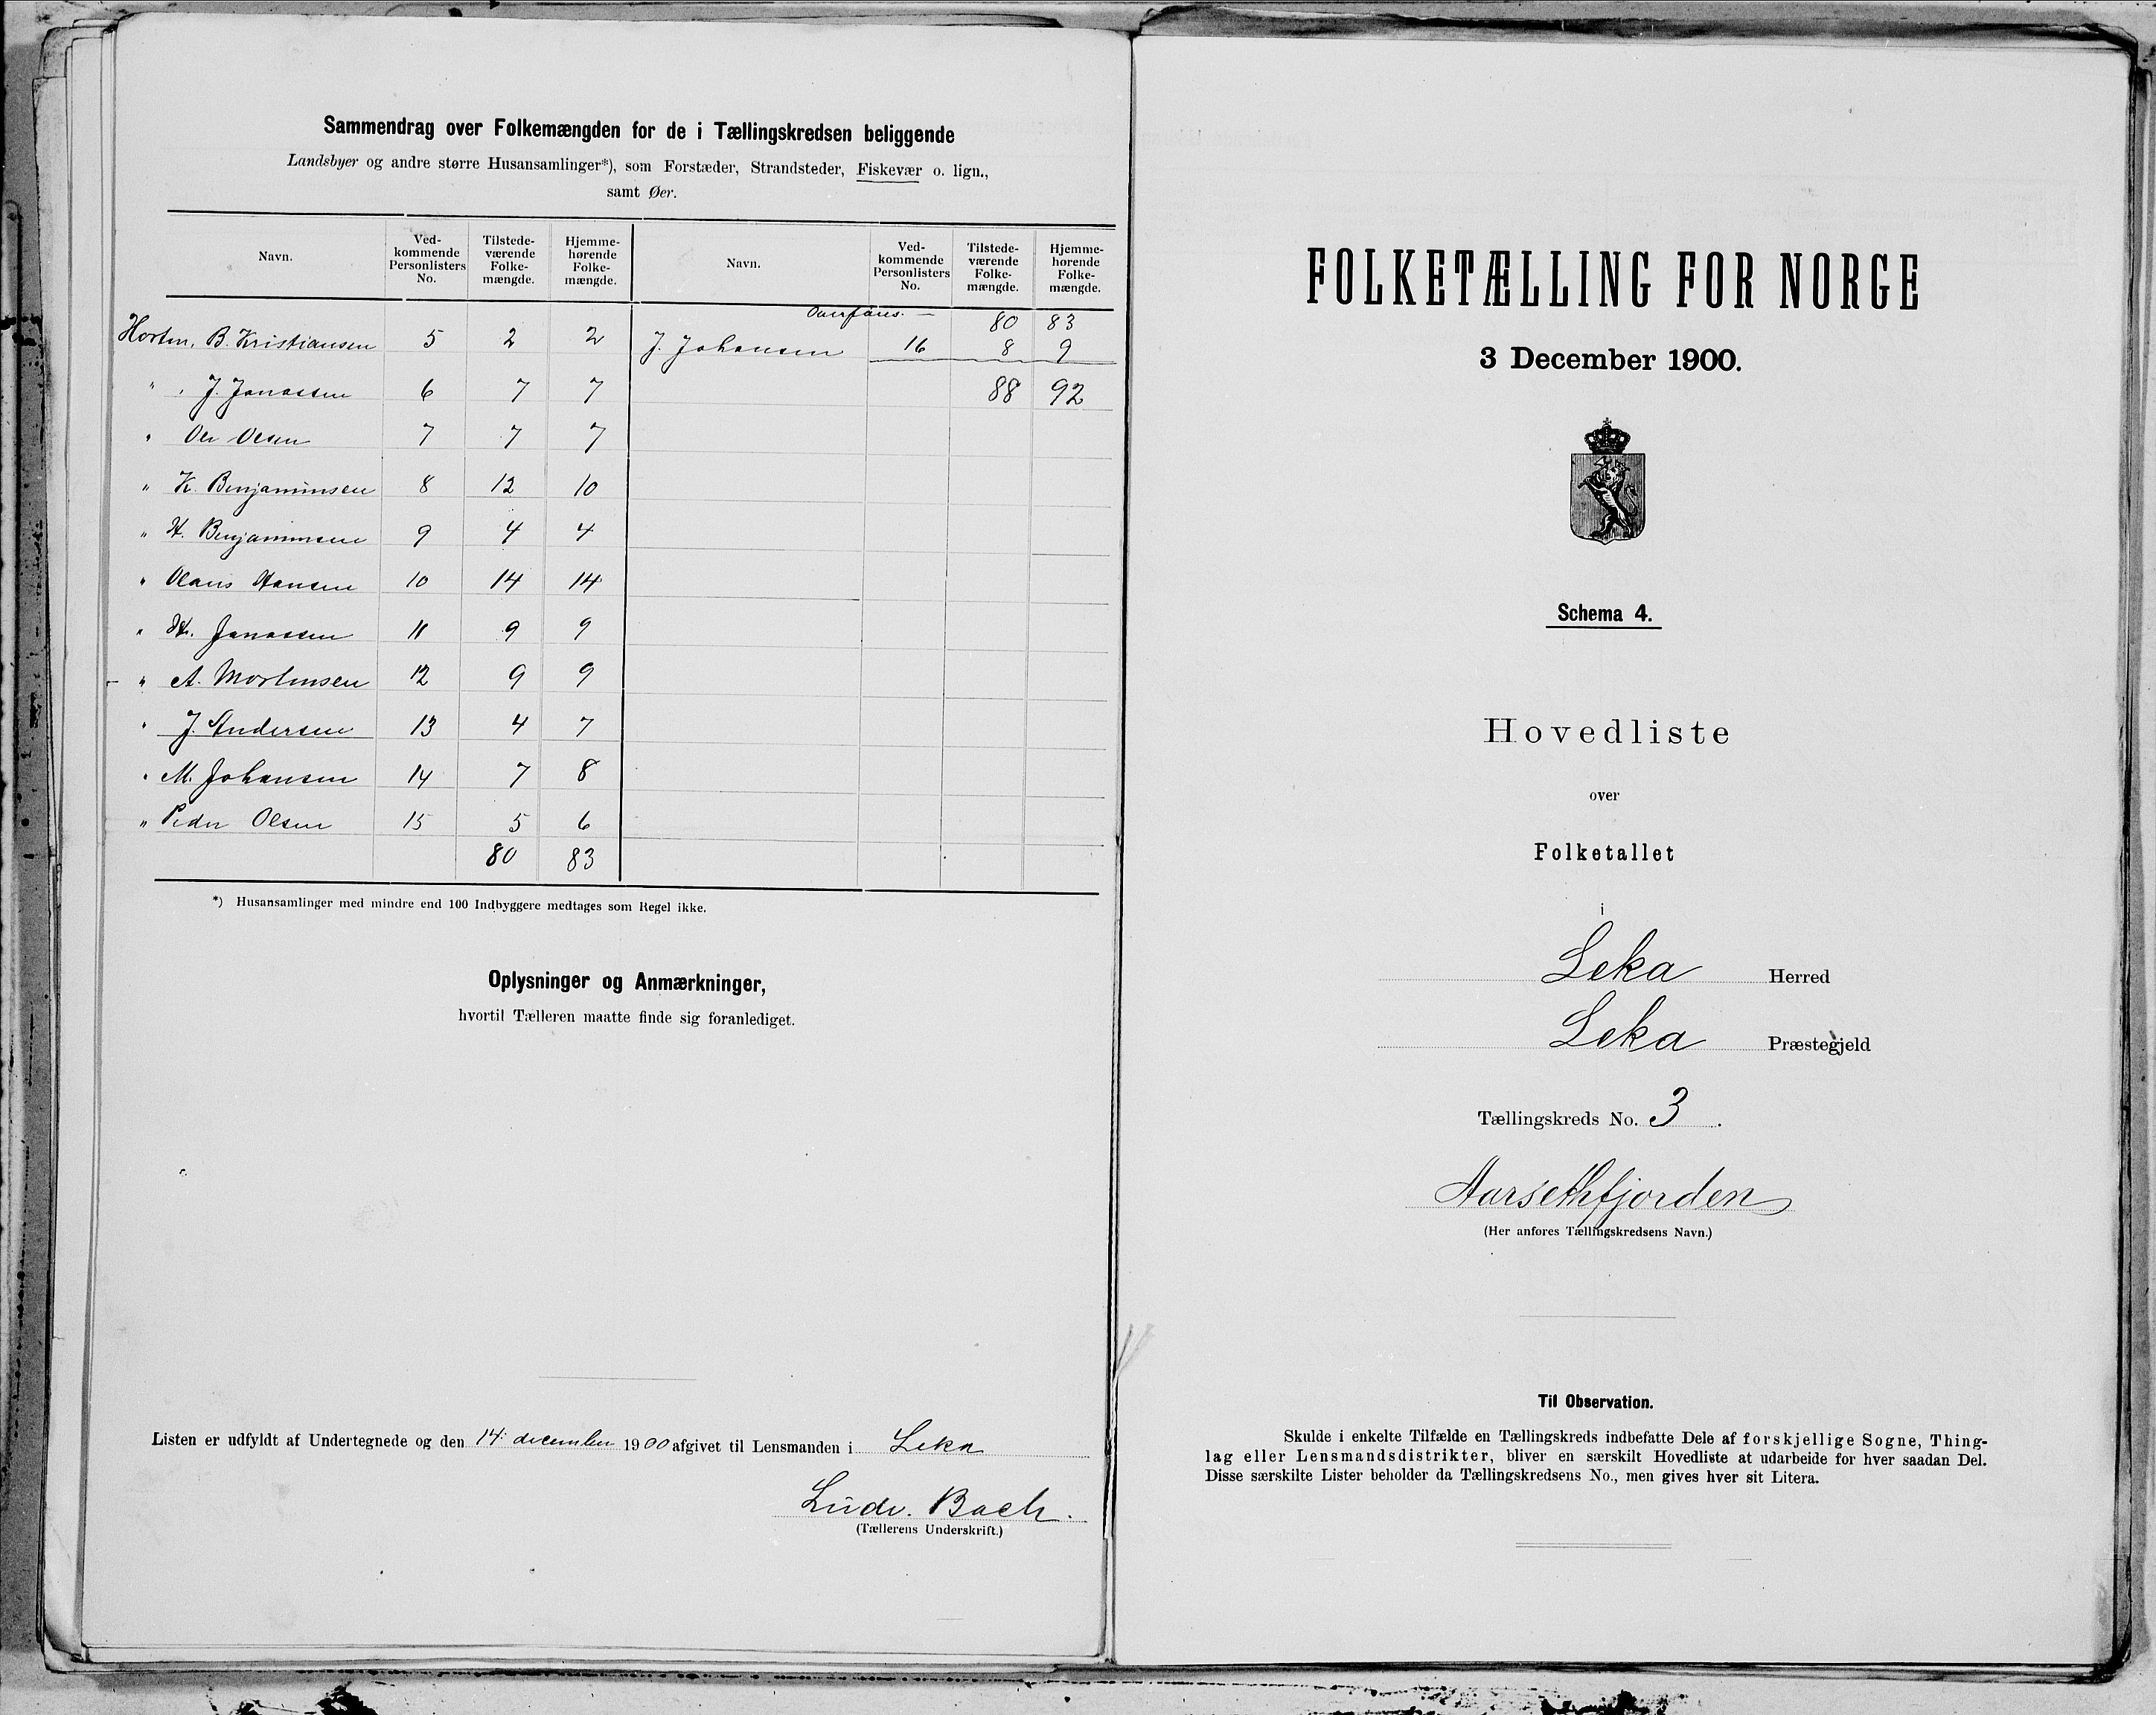 Sammendrag over Folkemængden for de i Tællingskredsen beliggende
Landsbyer og andre større Husansamlinger*), som Forstæder, Strandsteder, Fiskevær o. lign.,
samt Øer.
Navn. Ved-kommende Personlisters No. Tilstede-værende Folke-mængde. Hjemme-hørende Folke-mængde. Navn. Ved-kommende Personlisters No. Tilstede-værende Folke-mængde. Hjemme-hørende Folke-mængde.
80 83
Horten, B. Kristiansen 5 2 2 J. Johansen 16 8 9
" , J. Jonassen 6 7 7 88 92
" Ole Olsen 7 7 7
" K. Benjaminsen 8 12 10
" H. Benjaminsen 9 4 4
" Olaus Hansen 10 14 14
" H. Jonassen 11 9 9
" A. Mortensen 12 9 9
" J. Andersen 13 4 7
" M. Johansen 14 7 8
" Peder Olsen 15 5 6
80 83
*) Husansamlinger med mindre end 100 Indbyggere medtages som Regel ikke.
Oplysninger og Anmærkninger,
hvortil Tælleren maatte finde sig foranlediget.
Listen er udfyldt af Undertegnede og den 14. december 1900 afgivet til Lensmanden i Leka
Ludv. Bach.
(Tællerens Underskrift.)
FOLKETÆLLING FOR NORGE
3 December 1900.
Schema 4.
Hovedliste
over
Folketallet
i
Leka Herred
Leka Præstegjeld
Tællingskreds No. 3.
Aarsethfjorden
(Her anføres Tællingskredsens Navn.)
Til Observation.
Skulde i enkelte Tilfælde en Tællingskreds indbefatte Dele af forskjellige Sogne, Thing-
lag eller Lensmandsdistrikter, bliver en særskilt Hovedliste at udarbeide for hver saadan Del.
Disse særskilte Lister beholder da Tællingskredsens No., men gives hver sit Litera.